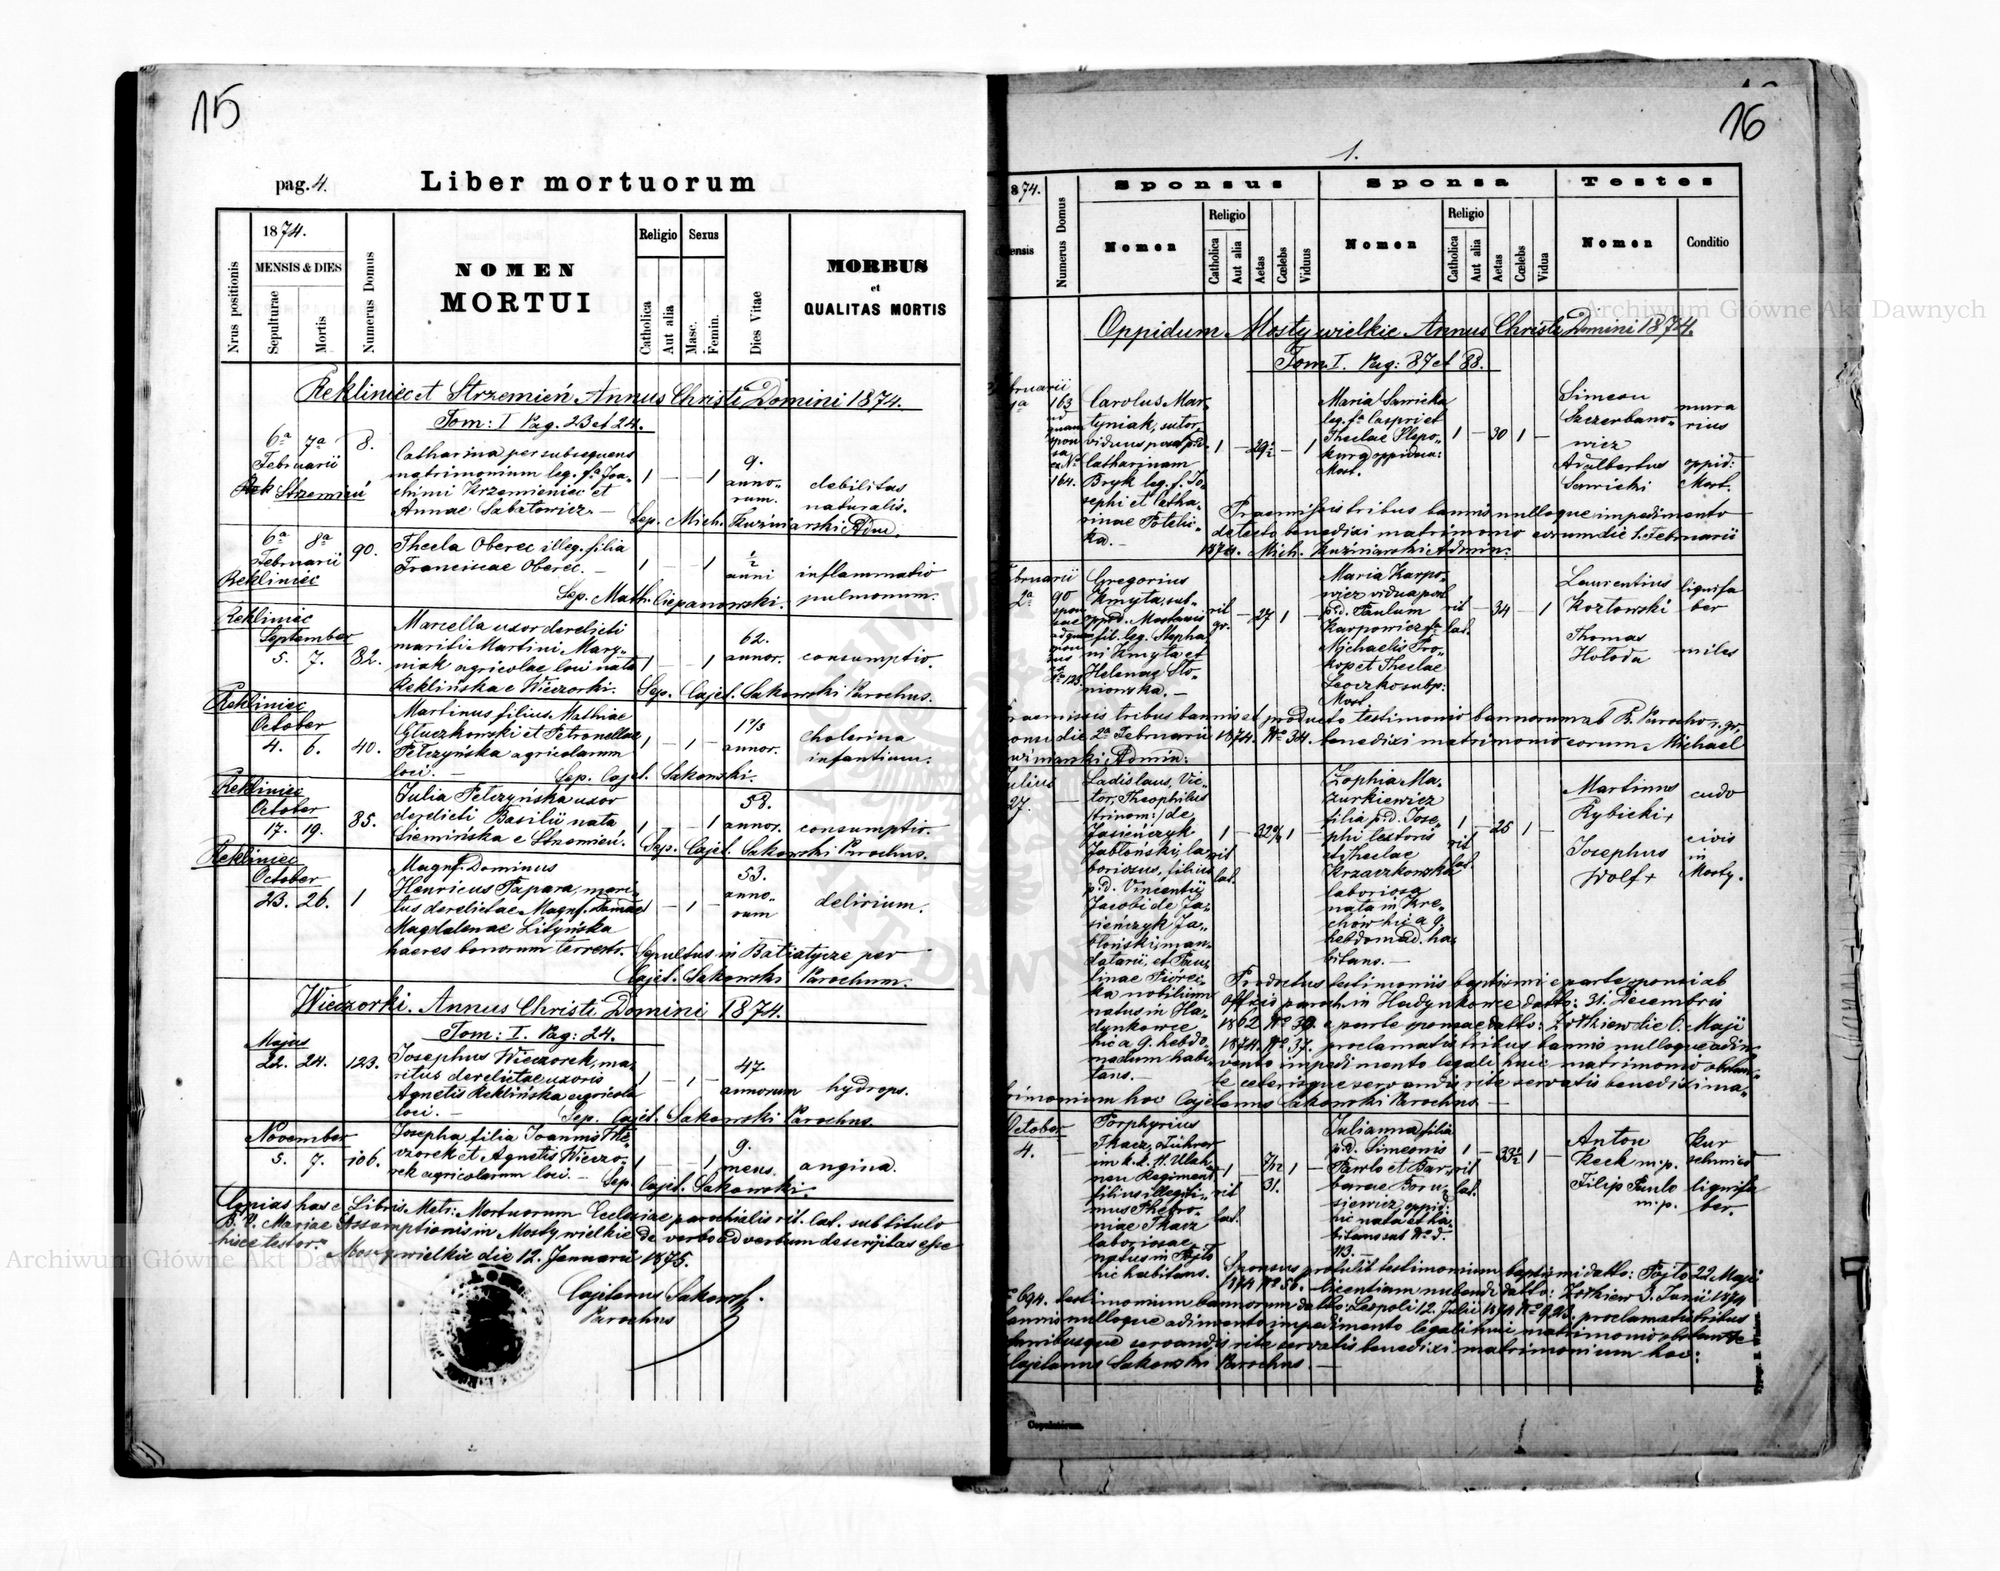 15
pag. 4.
Liber mortuorum
Nrus positionis
1874.
MENSIS & DIES
Sepulturae
Mortis
Numerus Domus
NOMEN
MORTUI
Religio
Catholica
Aut alia
Sexus
Masc.
Femin.
Dies Vitae
MORBUS
et
QUALITAS MORTIS
Rekliniec et Strzemień Annus Christi Domini 1874.
Tom: I Pag. 23 et 24.
6a 7a
Februarii
Strzemień
8.
Catharina per subsequens
matrimonium leg. fa Joa-
chimi Krzemieniec et
Annae Sabatowicz.—
1 — — 1
9.
anno-
rum.
debilitas
naturalis.
Sep. Mich. Kuziniarski Adm.
6a 8a
Februarii
Rekliniec
90.
Thecla Oberec illeg. filia
Franciscae Oberec. —
1 — — 1
1/2
anni
inflammatio
pulmonum.
Sep. Math. Ciepanowski.
Rekliniec
September
5. 7.
82.
Marcella uxor derelicti
mariti Martini Marg-
niak agricolae loci nata
Reklińska e Wieczorki.
1 — — 1
62.
annor.
consumptio.
Sep. Cajet. Sakowski Parochus.
Rekliniec
October
4. 6.
40.
Martinus filius Mathiae
Głuczkowski et Petronellae
Pełczyńska agricolarum
loci. —
1 — 1 —
1 1/3
annor.
cholerina
infantium.
Sep. Cajet. Sakowski.
Rekliniec
October
17. 19.
85.
Julia Pełczyńska uxor
derelicti Basilii nata
Siemińska e Strzemień.
1 — — 1
58.
annor.
consumptio.
Sep. Cajet. Sakowski Parochus.
Rekliniec
October
23. 26.
1
Magnf. Dominus
Henricus Papara, mari-
tus derelictae Magnf. Dominae
Magdalenae Lityńska
haeres bonorum terrestr.
— 1 —
53.
anno-
rum
delirium.
Sepultus in Batiatycze per
Cajet. Sakowski Parochum.
Wieczorki. Annus Christi Domini 1874.
Tom: I. Pag: 24.
Majus
22. 24.
123.
Josephus Wieczorek, ma-
ritus derelictae uxoris
Agnetis Reklińska agricola
loci. —
1 — 1 —
47.
annorum
hydrops.
Sep. Cajet. Sakowski Parochus.
November
5. 7.
106.
Josepha filia Joannis Wie-
czorek et Agnetis Wieczo-
rek agricolarum loci. —
1 — — 1
9.
mens.
angina.
Sep. Cajet. Sakowski.
Copias has e Libris Metr: Mortuorum Ecclesiae parochialis rit. lat. sub titulo
B. V. Mariae Assumptionis in Mosty wielkie de verbo ad verbum descriptas esse
hisce testor. Mosty wielkie die 12. Januarii 1875.
Cajetanus Sakowski
Parochus
16
1.
874.
Numerus Domus
Sponsus
Nomen
Religio
Catholica
Aut alia
Aetas
Cœlebs
Viduus
Sponsa
Nomen
Religio
Catholica
Aut alia
Aetas
Cœlebs
Vidua
Testes
Nomen
Conditio
Oppidum Mosty wielkie Annus Christi Domini 1874.
Tom. I. Pag: 87 et 88.
163
164.
Carolus Mar-
tyniak, sutor,
viduus post p.d.
Catharinam
Bryk leg. f. Jo-
sephi et Catha-
rinae Potelic-
ka. —
1 — 29 1/2 — 1
Maria Sawicka
leg. fa Caspri et
Theclae Slepo-
kura oppidan:
Most.
1 — 30 1 —
Simeon
Szczerbano-
wicz
Adalbertus
Sawicki
mura
rius
oppid:
Most.
Praemissis tribus bannis nulloque impedimento
detecto benedixi matrimonio eorum die 1. Februarii
1874. Mich. Kuziniarski Admin:
2a
90
No 123.
Gregorius
Kmyta, sub-
oppid. Mostensis
fil. leg. Stepha-
ni Kmyta et
Helenae Sło-
niowska. —
rit
gr. — 27 1 —
Maria Karpo-
wicz vidua post
p.d. Paulum
Karpowicz fa
Michaelis Pro-
kop et Theclae
Leoczko subp:
Most
rit
lat. — 34 — 1
Laurentius
Kozłowski
Thomas
Hołoda
lignifa
ber
miles
Praemissis tribus bannis et producto testimonio bannorum ab R. Parocho r. gr.
die 2a Februarii 1874. No 34. benedixi matrimonio eorum Michael
Kuziniarski Admin:
Julius
27. —
Ladislaus, Vic-
tor, Theophilus
(trinom:) de
Jasieńczyk
Jabłoński, la-
boriosus, filius
p.d. Vincentii
Jacobi de Ja-
sieńczyk Ja-
błoński, man-
datarii, et Pau-
linae Piórec-
ka nobilium
natus in Ha-
dynkowce
hic a 9. hebdo-
madum habi-
tans. —
1
rit
lat.
Zophia Ma-
zurkiewicz
filia p.d. Jose-
phi textoris
et Theclae
Krzaczkowska
laboriosa
nata in Kre-
chów hic a 9.
hebdomad. ha-
bitans. —
1
rit
lat.
— 25 1 —
Martinus
Rybicki +
Josephus
Wolf +
cudo
civis
in
Mosty.
Productus testimoniis baptismi e parte sponsi ab
officio paroch. in Hadynkowce datto: 31. Decembris
1862 No 39. e parte sponsae datto: Żółkiew die 6. Maji
1874. No 37. proclamatis tribus bannis nulloque adin-
vento impedimento legali huic matrimonio obstan-
te ceterisque servandis rite servatis benedixi ma-
trimonium hoc Cajetanus Sakowski Parochus. —
October
4. —
Porphyrius
Tkacz, Führer
im k. k. Uhla-
nen Regiment
filius illegiti-
mus Thebro-
niae Tkacz
laboriosae,
natus in Pojto
hic habitans. —
1
rit
lat.
31.
1 —
Julianna filia
p.d. Simeonis
Pawlo et Bar-
barae Boru-
siewicz oppid:
hic nata et ha-
bitans sub No d.
113. —
1
rit
lat.
— 33 1/2 1 —
Anton
Keck m.p.
Filip Pawlo
m.p.
Kur
schmied
lignifa
ber.
Sponsus protulit testimonium baptismi datto: Pojto 22 Maji
1874 No 56. licentiam nubendi datto: Żółkiew 3. Junii 1874
No 694. testimonium bannorum datto: Leopoli 12. Julii 1874 No 923. proclamatis tribus
bannis nulloque adinvento impedimento legali huic matrimonio obstante
ceteribusque servandis rite servatis benedixi matrimonium hoc:
Cajetanus Sakowski Parochus. —
Copulatorum.
Archiwum Główne Akt Dawnych
Archiwum Główne Akt Dawnych